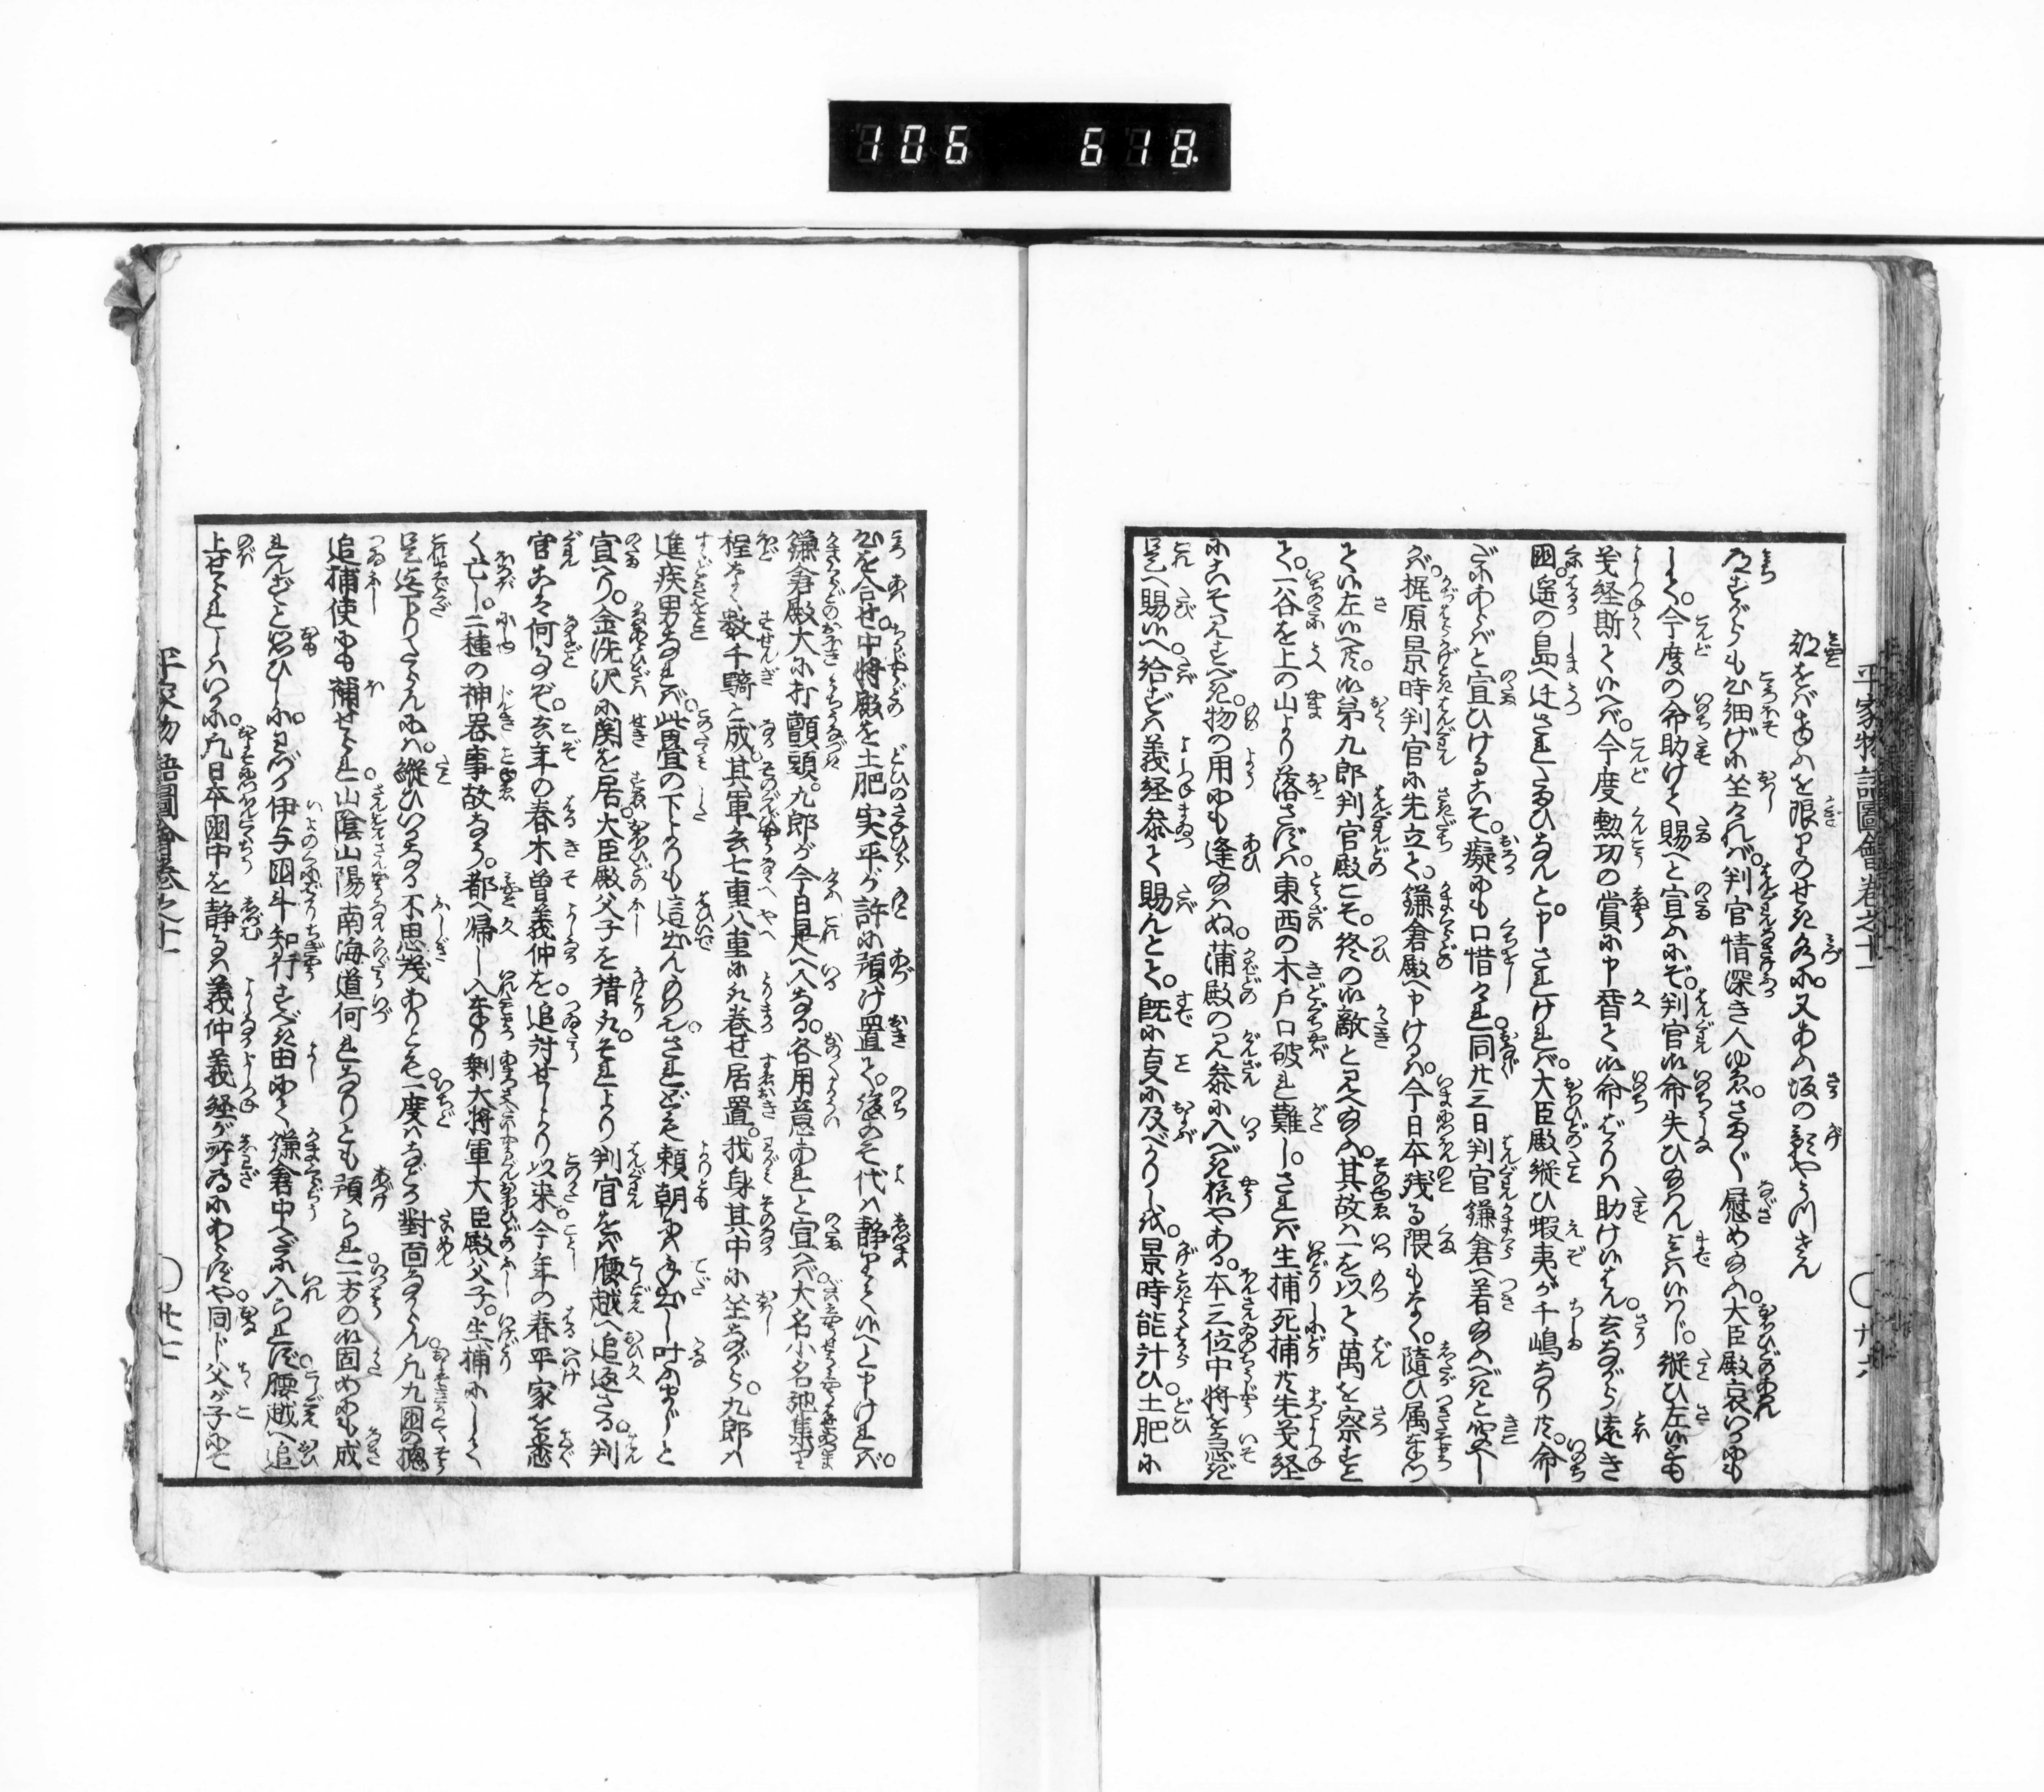 106 618
平家物語圖會卷之十一
都をばけふを限りのせき水に又あふ坂のかげやうつさん
道すがらも心細げに坐ければ。判官情深き人ゆゑ。さまざま慰め給ふ。大臣殿哀いかにも
して。今度の命助けて賜へと宣ふにぞ。判官御命失ひ給はんとはいはじ。縱ひ左いふとも
義経斯て候へば。今度勲功の賞に申替て御命ばかりは助け候はん。去ながら遠き
国。遥の島へ迁されたまひなんと。申されければ。大臣殿縱ひ蝦夷が千嶋なり共。命
だにあらばと宣ひけるこそ。口惜けれ。同廿三日判官鎌倉へ着給ふべきと聞へし
が。梶原景時判官に先立て。鎌倉殿へ申けるは。今日本残る隈もなく。隨ひ属奉り
て候左いへ共。御弟九郎判官殿こそ。終の御敵と見へ給ふ。其故は一を以て萬を察すと
て。一谷を上の山より落さずは。東西の木戸口破れ難し。されば生捕死捕共先義経
にこそ見すべき。物の用にも逢給はぬ。蒲殿の見参に入べき様やある。本三位中将を急ぎ
是へ賜り候へ給ずは義経参て賜んとて。既に事に及べかりしを。景時能計ひ土肥に
心を合せ。中将殿を土肥実平が許に預け置て。後こそ代は静りて候へと申ければ。
鎌倉殿大に打顫頭。九郎が今日是へ入なる。各用意あれと宣へば大名小名馳集り
程なく。数千騎と成。其軍兵七重八重に取巻せ居置。我身其中に坐ながら。九郎は
進疾男なれば。此畳の下よりも這出んものぞ。されども頼朝には手出し叶ふまじと
宣り。金洗沢に関を居。大臣殿父子を請取。それより判官をば腰越へ追返さる。判
官こは何事ぞ。去年の春木曽義仲を。追討せしより以来。今年の春平家を悉
く亡し。二種の神器事故なう。都へ帰し入奉り剰大将軍大臣殿父子。生捕にして
是迄下りたらんには。縱ひいかなる不思議ありとも。一度はなどか對面なからん。凡九国の惣
追捕使にも補せられ。山陰山陽南海道何れなりとも預られ。一方の御固めにも成
れんずとこそ思ひしに。わづか伊与国斗知行すべき由にて。鎌倉中へだに入られず腰越へ追
上せられしはいかに。凡日本国中を静るは義仲義経が所為にあらずや。同じ父が子にて
平家物語圖會卷之十一